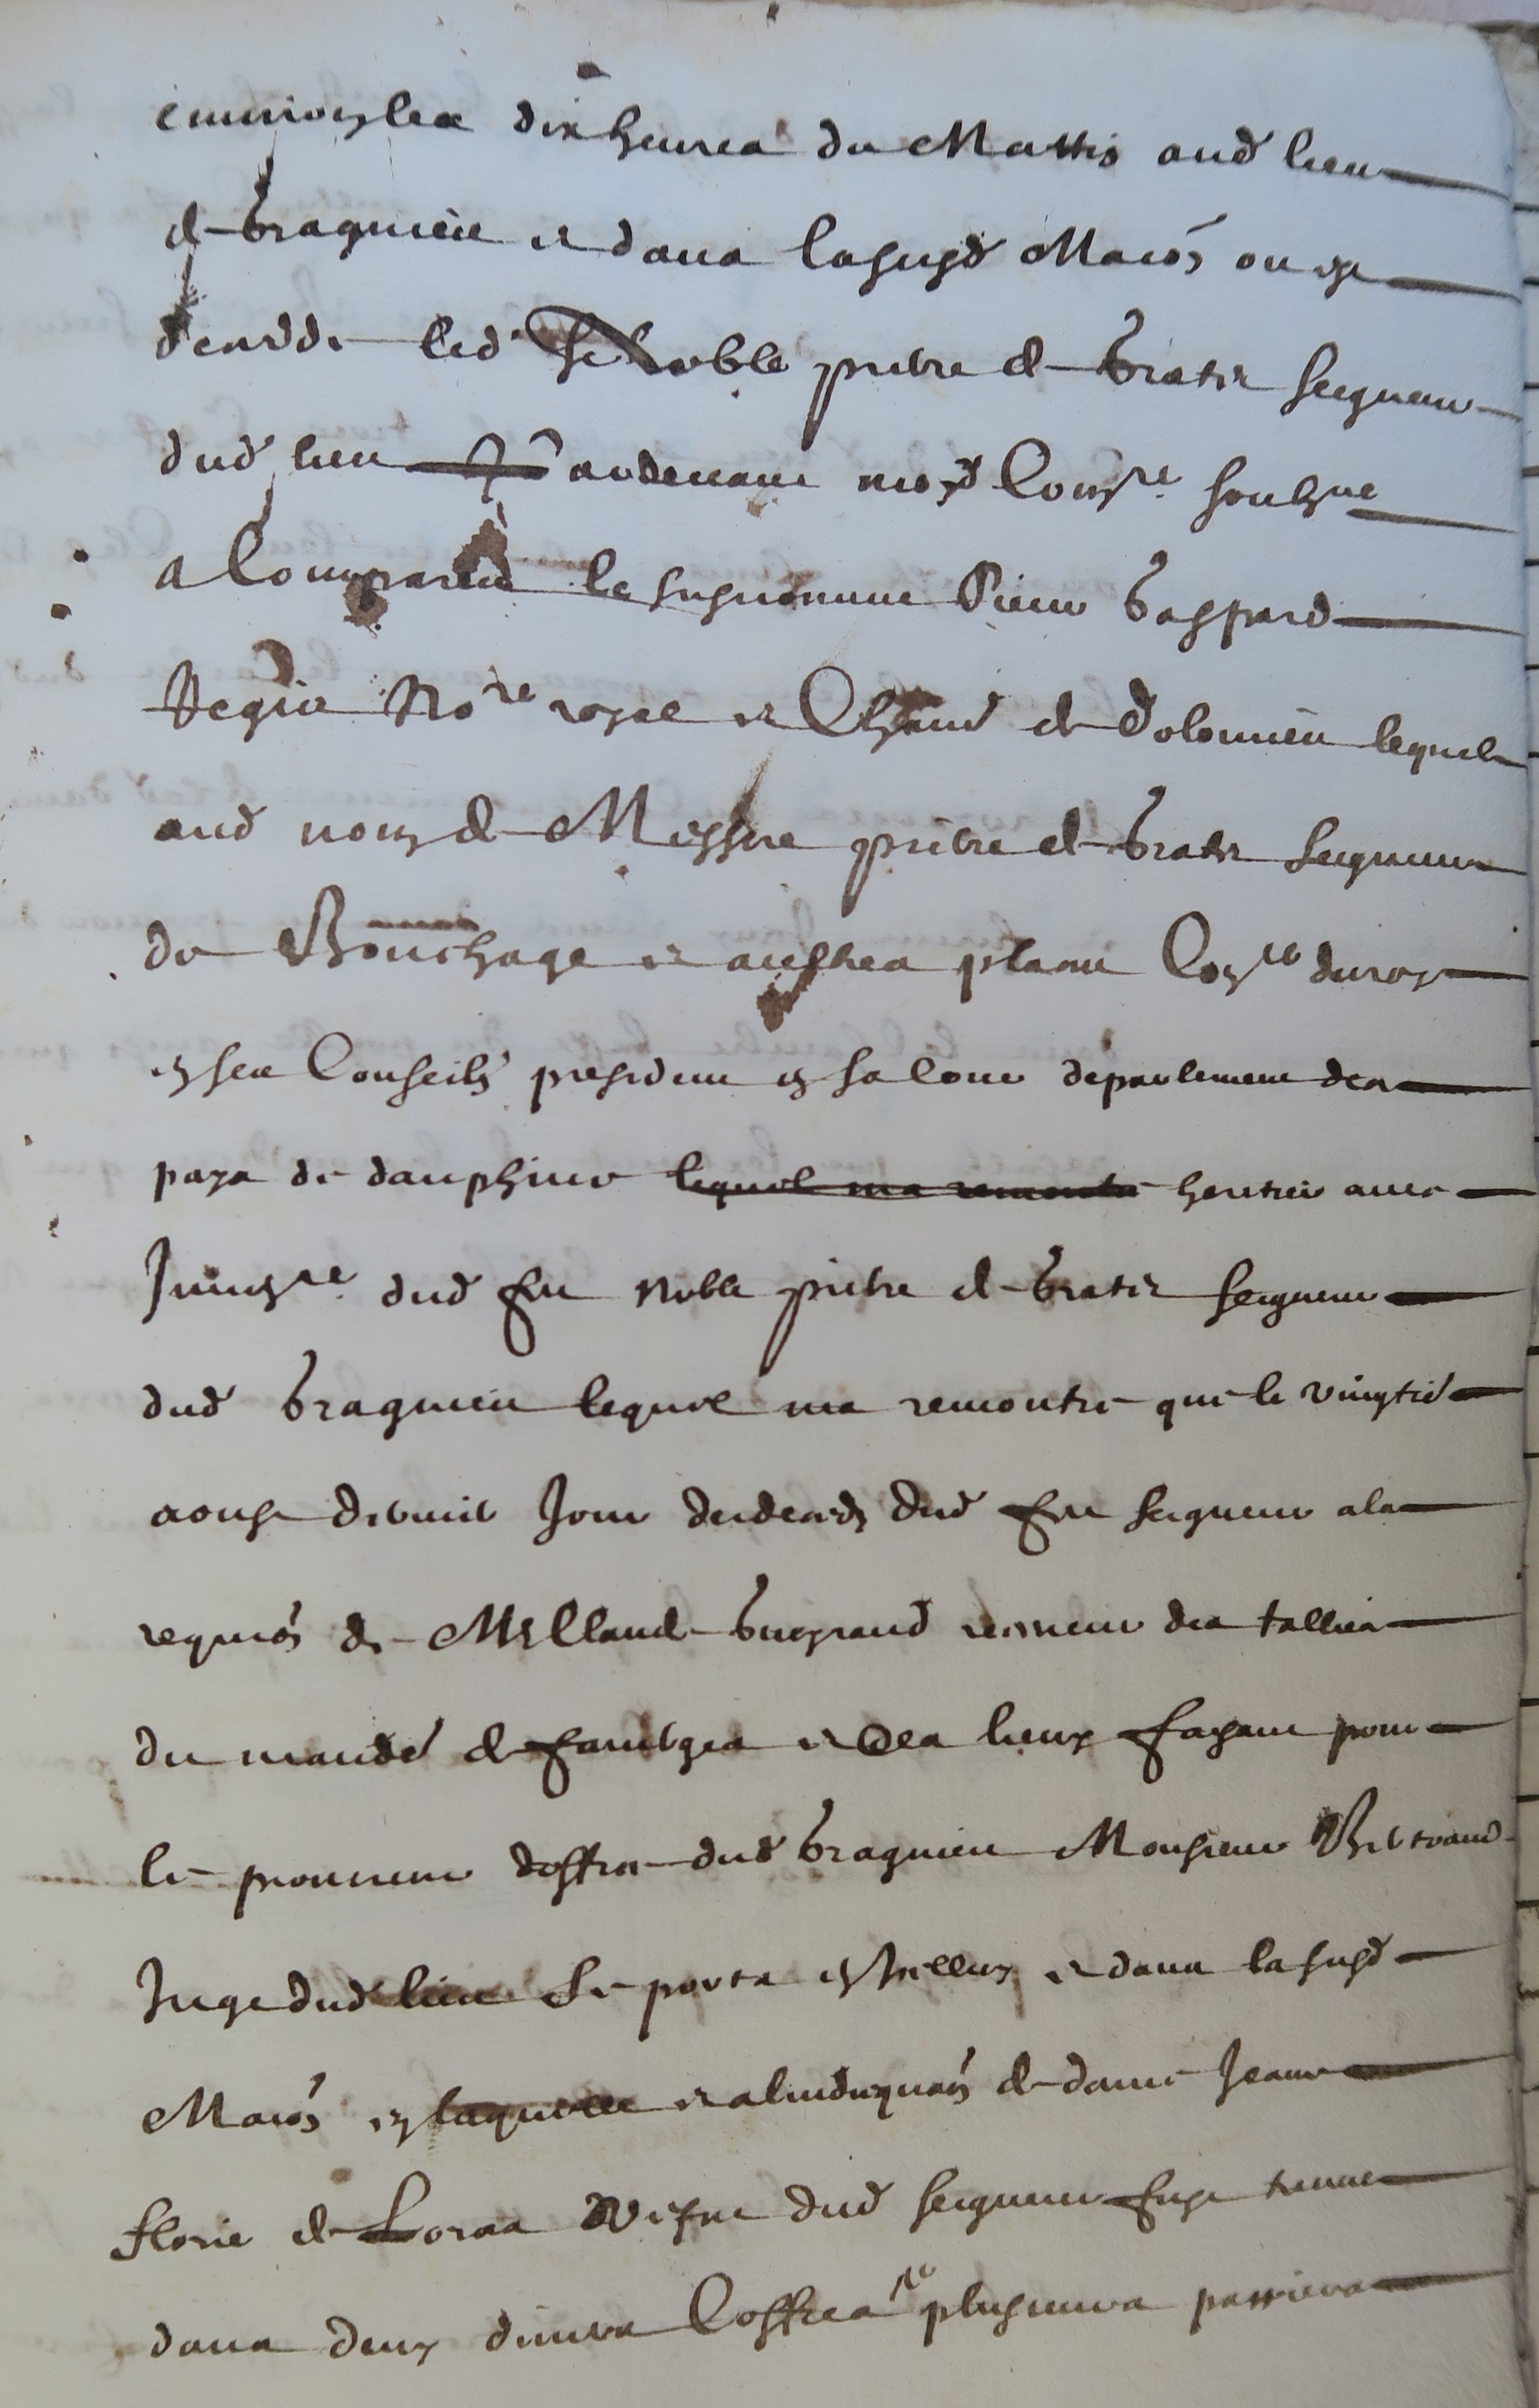 environ les dix heures du Mattin aud lieu
de bragnieu et dans la susd Maion ou est
decedde led feu Noble piere de bratier seigneur
dud lieu pardevant nosd Comre soubzne
a Comparu le susnomme Pierre gaspard
Regis Nore royal et Chastn de Dolomieu lequel
aud nom de Messire piere de bratier seigneur
du Bouchage et aultres places Coner du roy
en ses Conseils president en sa Cour de parlement des
pays de dauphine lequel ma remontre heritier avec
Invenre dud feu Noble piere de bratier seigneur
dud bragnieu lequel ma remontre que le vingtie
aoust dernier Jour du deces dud feu seigneur a la
requion de Me Claude guygrand receveur des tallies
du mandt de faverges et des lieux faysant pour
le procureur doffice dud bragnieu Monsieur Bertrand
Juge dud lieu se porta en Icelluy et dans la susd
Maion en laquelle et a lindiquaon de dame Jeane
florie de Loras Vefve dud seigneur fust treuve
dans deux divers Coffres plusieurs pappiers